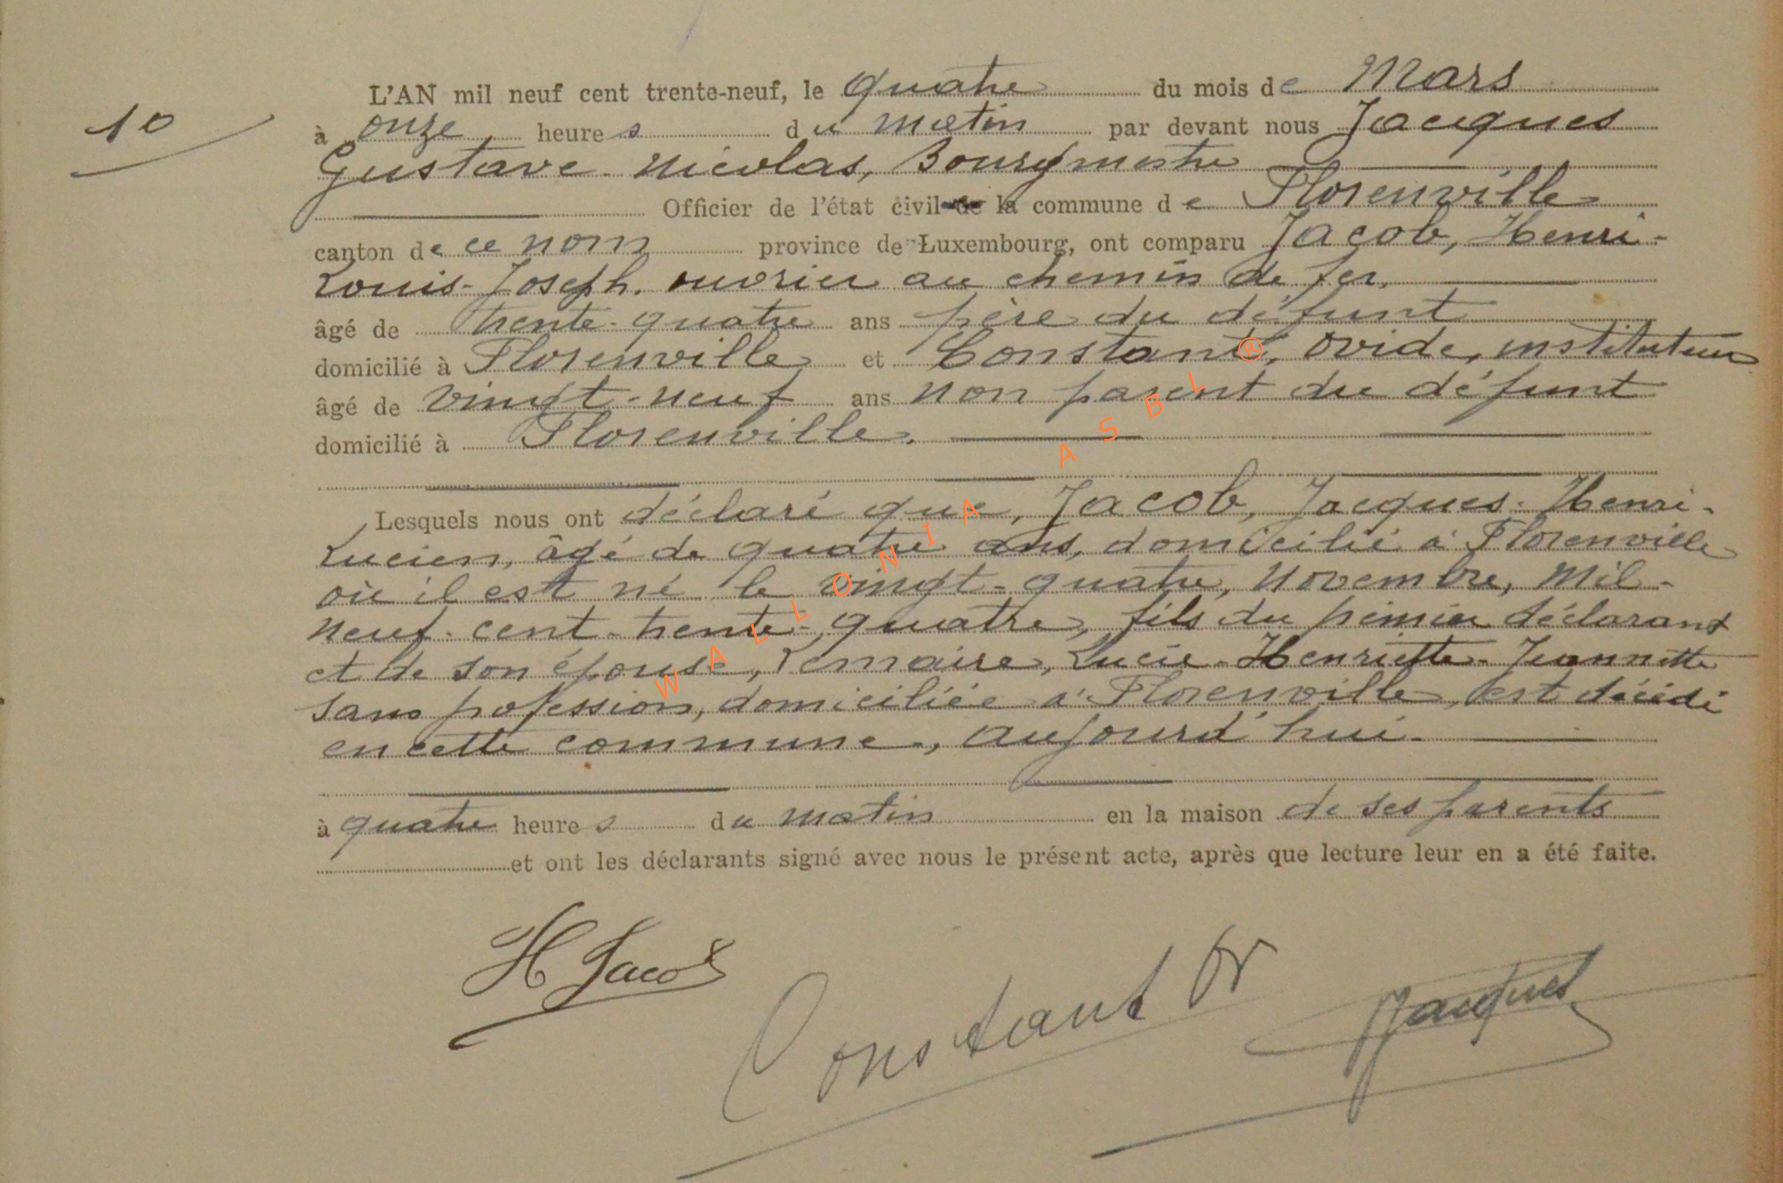 10
L'AN mil neuf cent trente-neuf, le quatre du mois de Mars
à onze, heures du matin par devant nous Jacques
Gustave Nicolas, Bourgmestre
Officier de l'état civil de la commune de Florenville
canton de ce nom province de Luxembourg, ont comparu Jacob, Henri-
Louis-Joseph, ouvrier au chemin de fer.
âgé de trente-quatre ans père du défunt
domicilié à Florenville et Constant, Ovide, instituteur
âgé de vingt-neuf ans non parent du défunt
domicilié à Florenville.
Lesquels nous ont déclaré que, Jacob, Jacques-Henri-
Lucien, âgé de quatre ans, domicilié à Florenville
où il est né le vingt-quatre, Novembre, mil-
neuf-cent-trente-quatre, fils du premier déclarant
et de son épouse, Lemaire, Lucie-Henriette-Jeannette
sans profession, domiciliée à Florenville, est décédé
en cette commune, aujourd'hui.
à quatre heures du matin en la maison de ses parents
et ont les déclarants signé avec nous le présent acte, après que lecture leur en a été faite.
H Jacob
Constant Ov
Jacques
WALLONIA ASBL ®